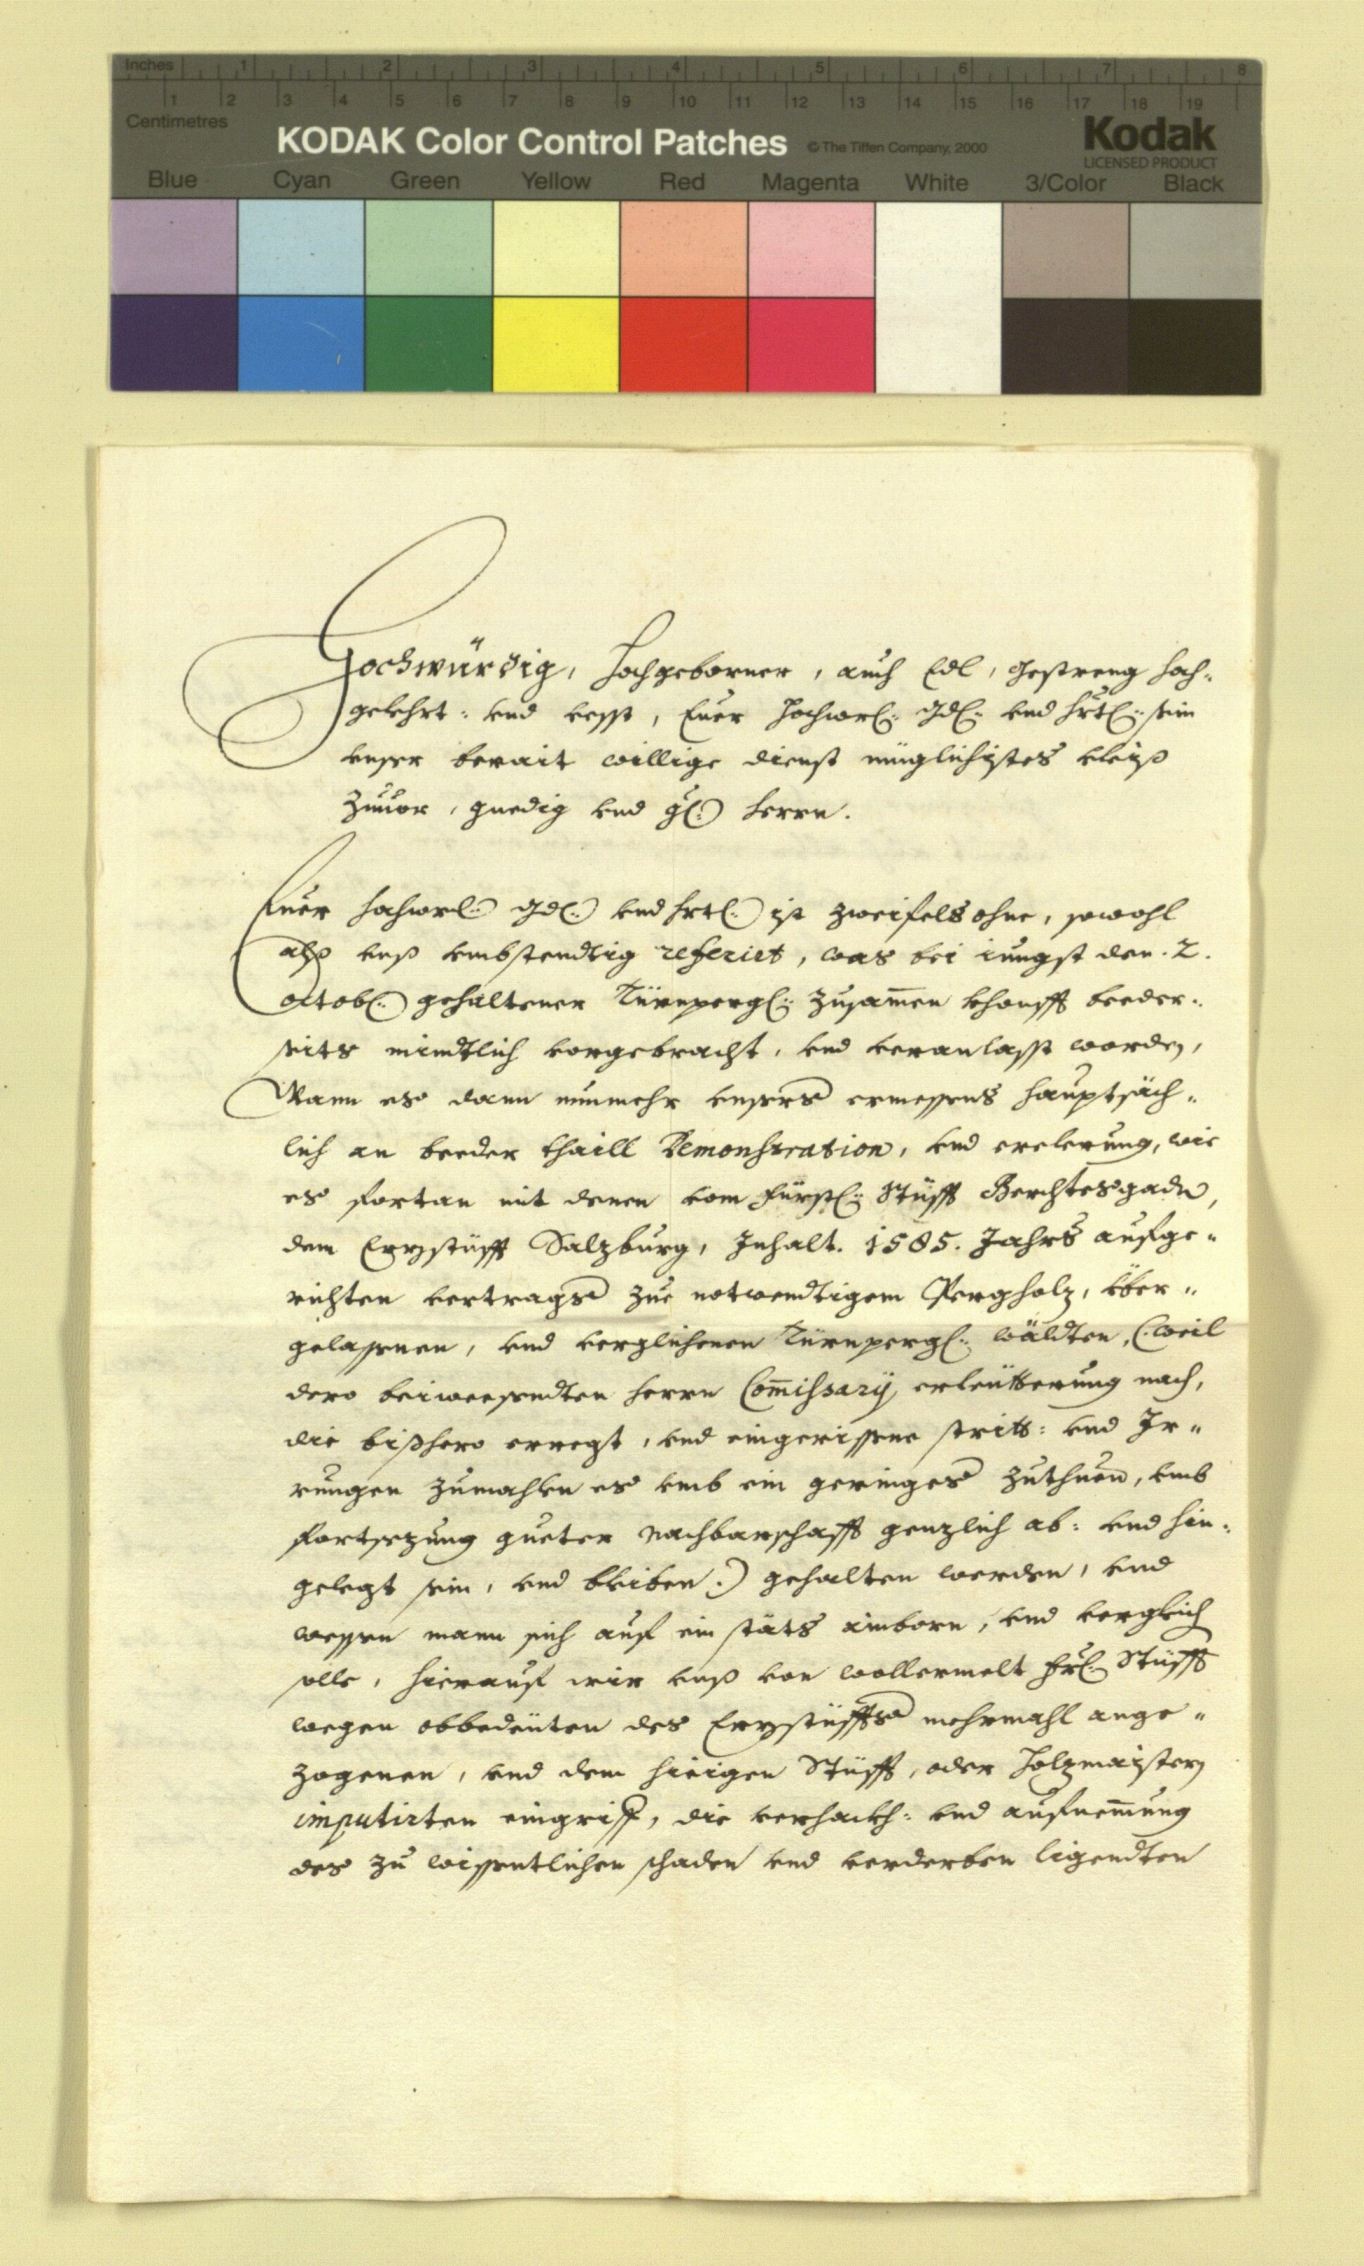 Inches 1 2 3 4 5 6 7 8
1 2 3 4 5 6 7 8 9 10 11 12 13 14 15 16 17 18 19
Centimetres
KODAK Color Control Patches © The Tiffen Company, 2000 Kodak
LICENSED PRODUCT
Blue Cyan Green Yellow Red Magenta White 3/Color Black
Hochwürdig, Hochgeborner, auch Edl, Gestreng hoch-
gelehrt: vnd vesst, Euer Hochwr: Gd: vnd hrt: sein
vnser berait willige dienst müglichistes vleiß
zuuor, gnedig vnd gl: herrn.
Euer hochwr: Gd: vnd hrt: ist zweifels ohne, sowohl
alß vnß vmbstendtig referirt, was bei iüngst den. 2.
octob: gehaltener Türnperg: zusamen khonfft beeder-
seits mindtlich vorgebracht, vnd veranlasst worden,
Wann es dann nunmehr vnsers ermessens hauptsäch-
lich an beeder thaill Demonstration, vnd erclerung, wie
es fortan mit denen vom fürstl: Stüfft Berchtesgaden,
dem Erzstüfft Salzburg, Inhalt. 1585. Jahrs aufge-
richten vertrags zue notwendtigem Pergholz, über-
gelassenen, vnd verglichenen Türnperg: wäldten, (: weil
dero beiwesendten herrn Commissarÿ erleütterung nach,
die bißhero erregt, vnd eingerissene stritt: vnd Ir-
rungen zumahlen es vmb ein geringes zuthuen, vmb
fortsezung gueter Nachbarschafft genzlich ab: vnd hin-
gelegt sein, vnd bleiben :) gehalten werden, vnd
wessen mann sich auf ein stäts vergleich
solle, hierauf wir vnß von wollermelt frl: Stüffts
wegen obbedeuten des Erzstüffts mehrmahl ange-
zogenen, vnd dem hieigen Stüfft, oder holzmaistern
imputirten eingriff, die verhackh: vnd aufnemung
des zu wissentlichen schaden vnd verderben ligendten